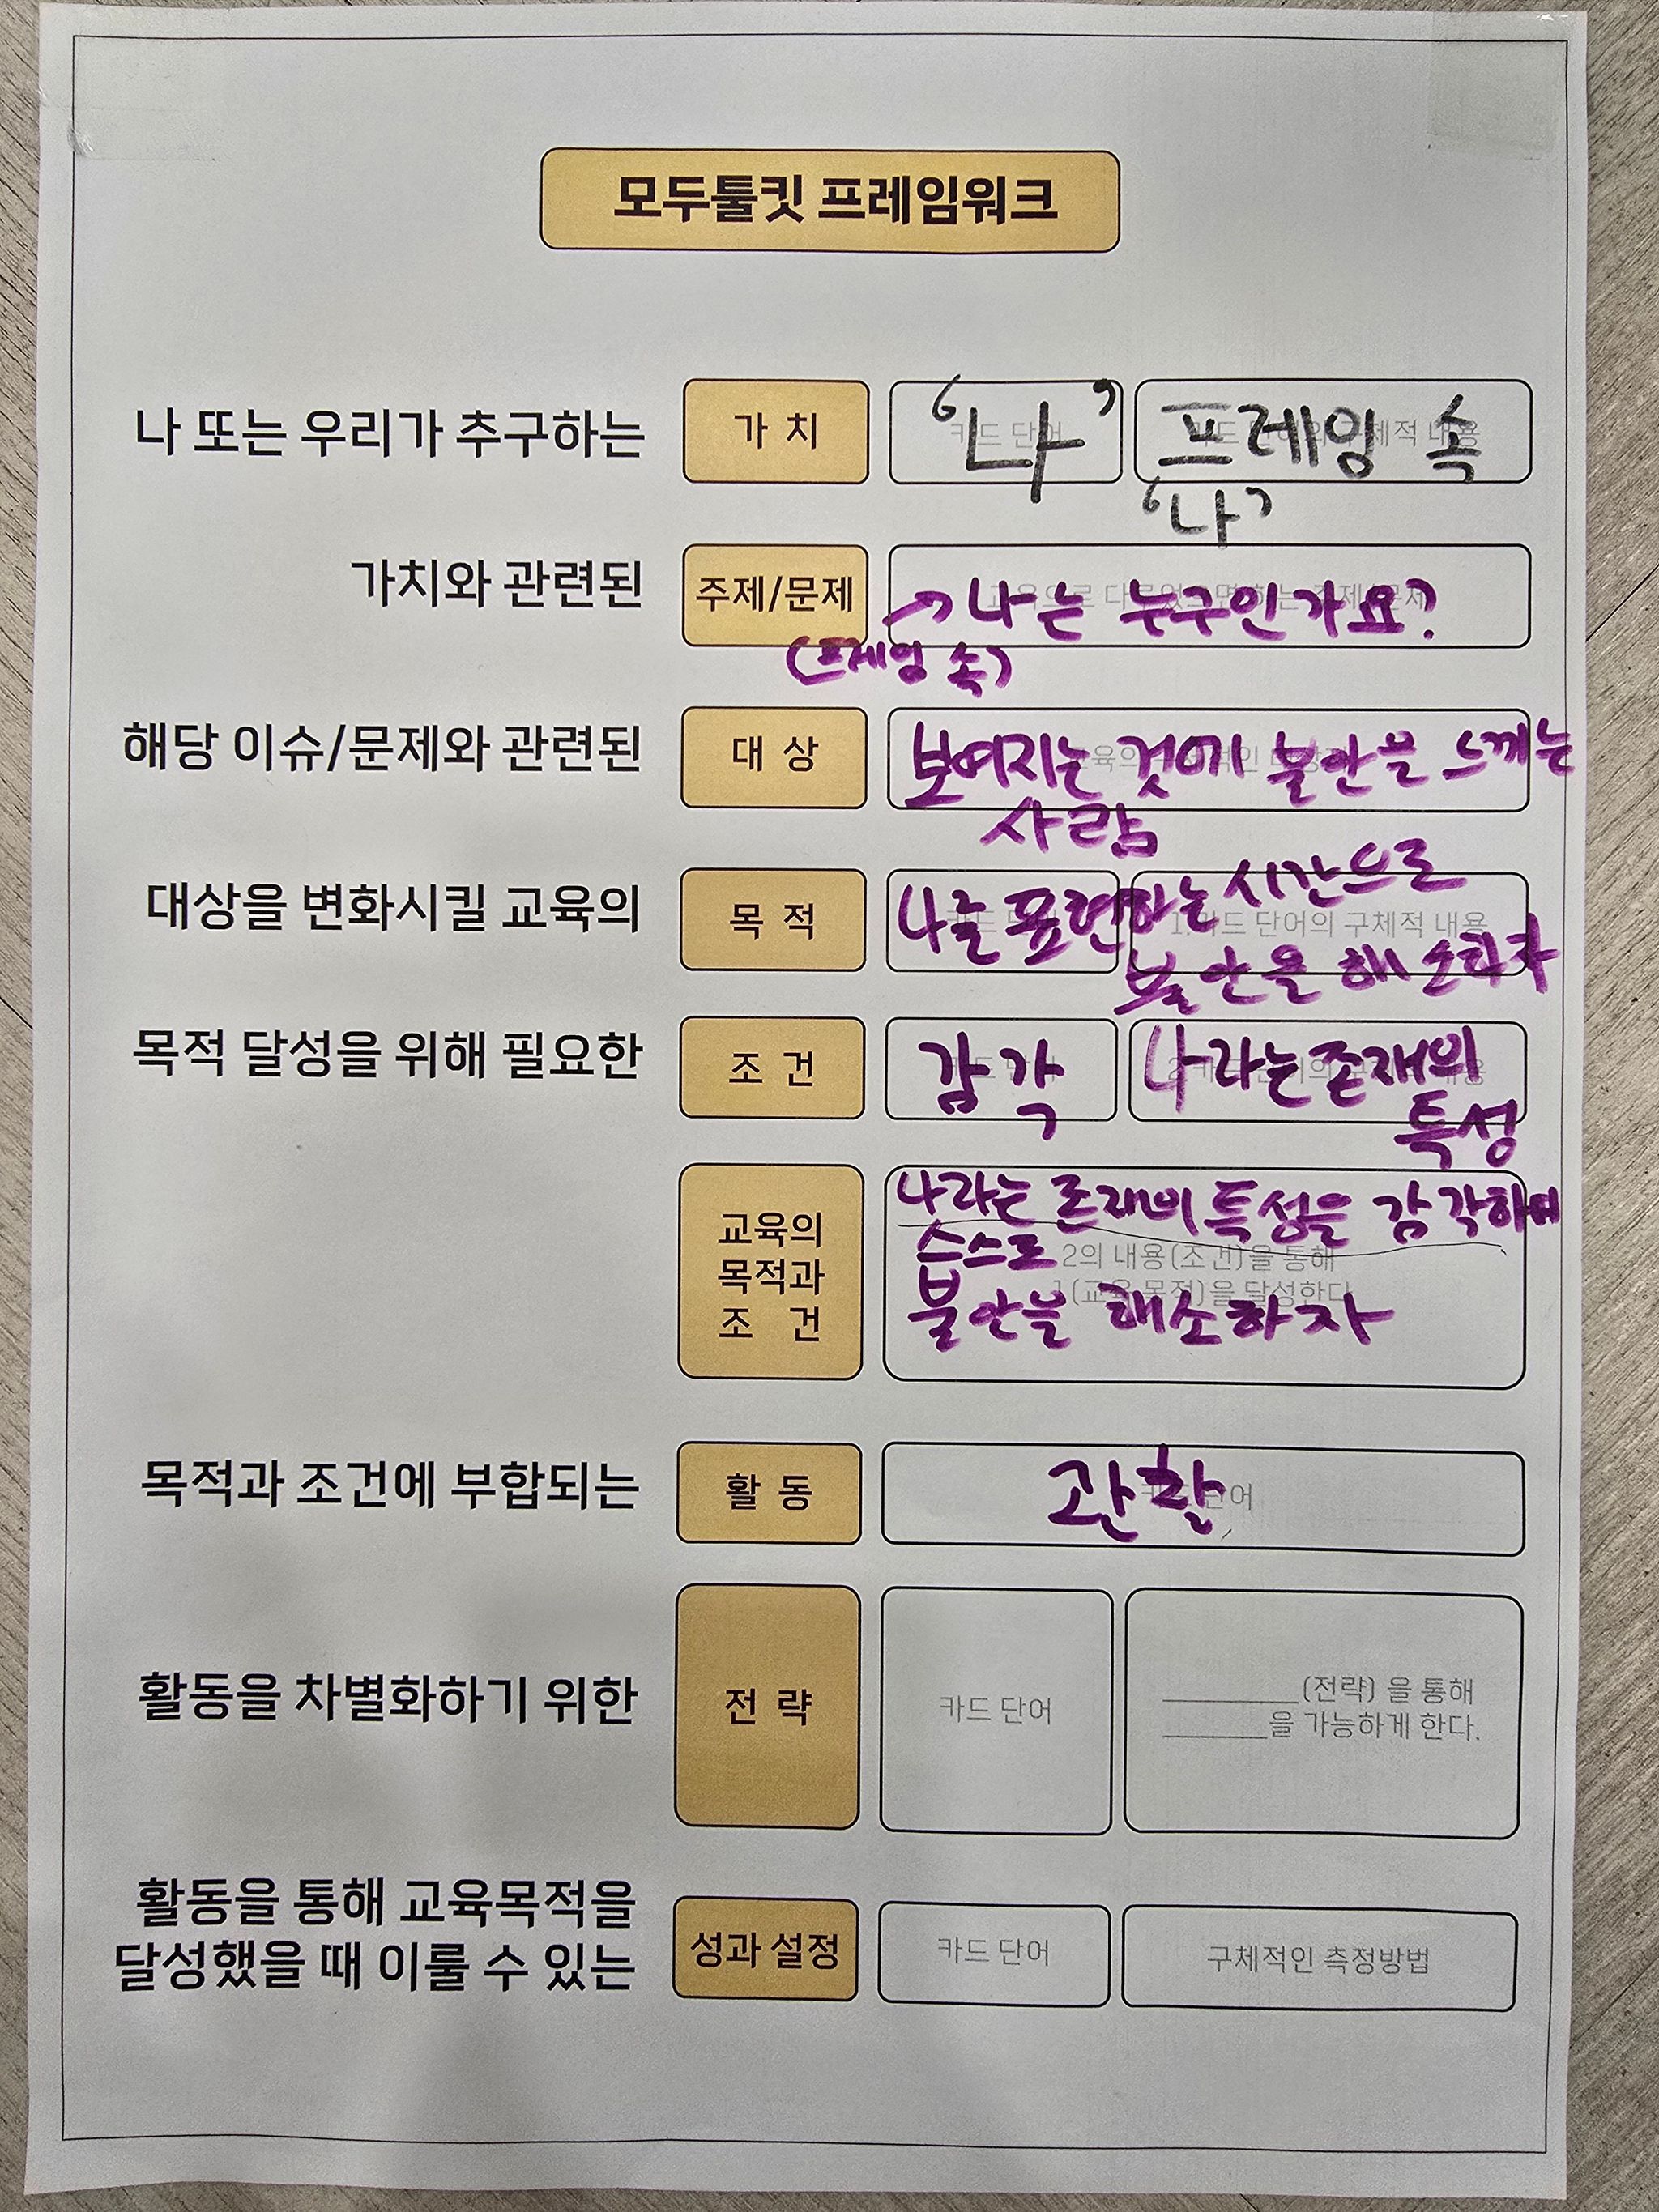 모두툴킷 프레임워크
나 또는 우리가 추구하는 가 치 '나' 프레임 속
'나'
가치와 관련된 주제/문제 → 나는 누구인가요?
(프레임 속)
해당 이슈/문제와 관련된 대 상 보여지는 것에 불안을 느끼는
사람
대상을 변화시킬 교육의 목 적 나를 표현하는 시간으로
불안을 해소하자
1. 카드 단어의 구체적 내용
목적 달성을 위해 필요한 조 건 감각 나라는 존재의
특성
교육의
목적과
조 건
나라는 존재의 특성을 감각하며
스스로
2의 내용(조건)을 통해
1(교육 목적)을 달성한다
불안을 해소하자
목적과 조건에 부합되는 활 동 관찰
활동을 차별화하기 위한 전 략 카드 단어
________(전략) 을 통해
________을 가능하게 한다.
활동을 통해 교육목적을
달성했을 때 이룰 수 있는 성과 설정 카드 단어 구체적인 측정방법